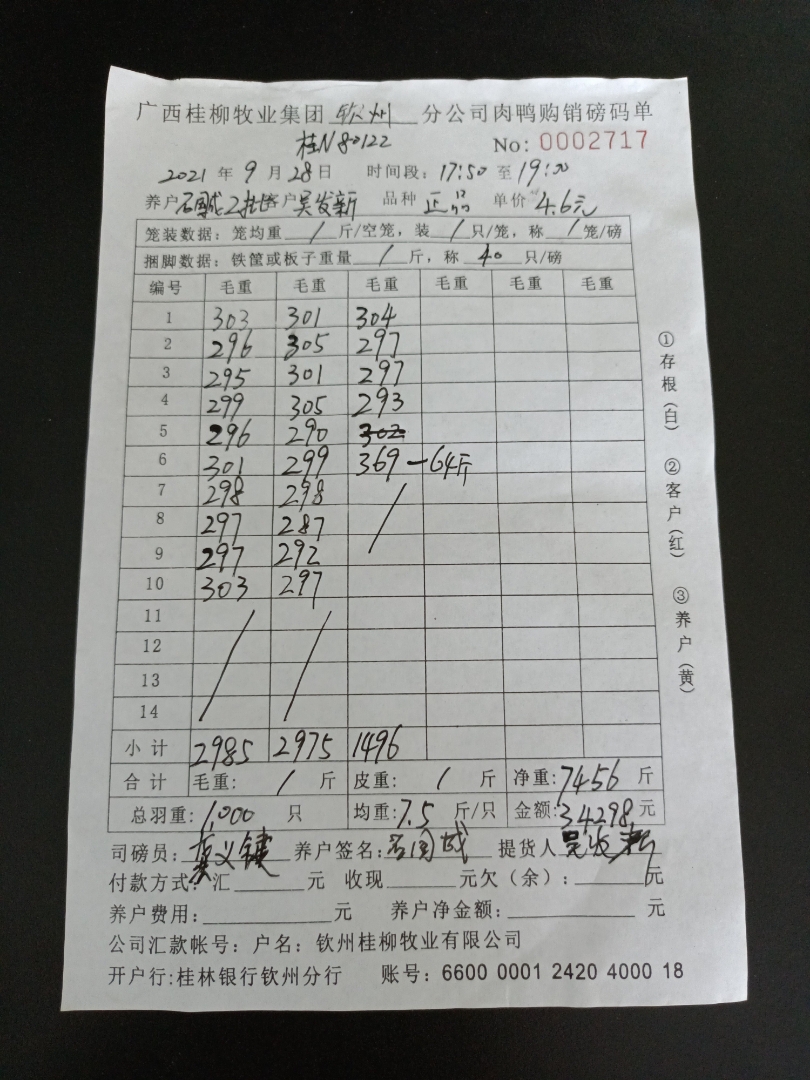 广西桂柳牧业集团 钦州 分公司肉鸭购销磅码单
桂N80122 No: 0002717
2021 年 9 月 28 日 时间段: 17:50 至 19:00
养户 客户 吴发新 品种 正品 单价 4.6元
笼装数据: 笼均重 / 斤/空笼, 装 / 只/笼, 称 / 笼/磅
捆脚数据: 铁筐或板子重量 / 斤, 称 40 只/磅
编号 毛重 毛重 毛重 毛重 毛重 毛重
1 303 301 304
2 296 305 297
3 295 301 297
4 299 305 293
5 296 290 302
6 301 299 369 -64斤
7 298 298 /
8 297 287
9 297 292
10 303 297
11 / /
12
13
14
小计 2985 2975 1496
合计 毛重: / 斤 皮重: / 斤 净重: 7456 斤
总羽重: 1,000 只 均重: 7.5 斤/只 金额: 34298 元
司磅员: 养户签名: 石国成 提货人 吴发新
付款方式: 汇 元 收现 元 欠(余): 元
养户费用: 元 养户净金额: 元
公司汇款帐号: 户名: 钦州桂柳牧业有限公司
开户行:桂林银行钦州分行 账号: 6600 0001 2420 4000 18
①存根(白) ②客户(红) ③养户(黄)